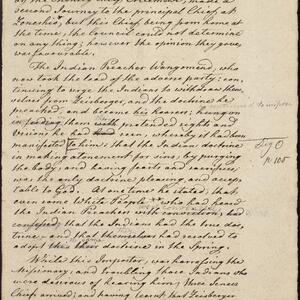 second Journey to the principal Chief at
Zoneshio, but this Chief being from home at
the time, the Council could not determine
on any thing; however the opinion they gave,
was favourable.
The Indian Preacher Wangomend, who
now took the lead of the adverse party: con-
tinuing to urge the Indians to withdraw them-
selves from Zeisberger, and the doctrine he
preached, and become his hearers;
Visions he had seen, whereby it had been
manifested to him; that the Indian doctrine
in making atonement for sins; by purging
the body, and having feasts and sacrifices,
was the only doctrine pleasing and accep-
table to God. At one time he stated, that
even some White People who had heard
the Indian Preachers with conviction, had
confessed that the Indians had the true doc-
trine, and that themselves had resolved to
adopt this doctrine in the Spring.
While this Impostor, was harrassing the
Missionary, and troubling those Indians who
were desirous of hearing him; three Seneca
Chiefs arrived; and having learnt that Zeisberger
p 105